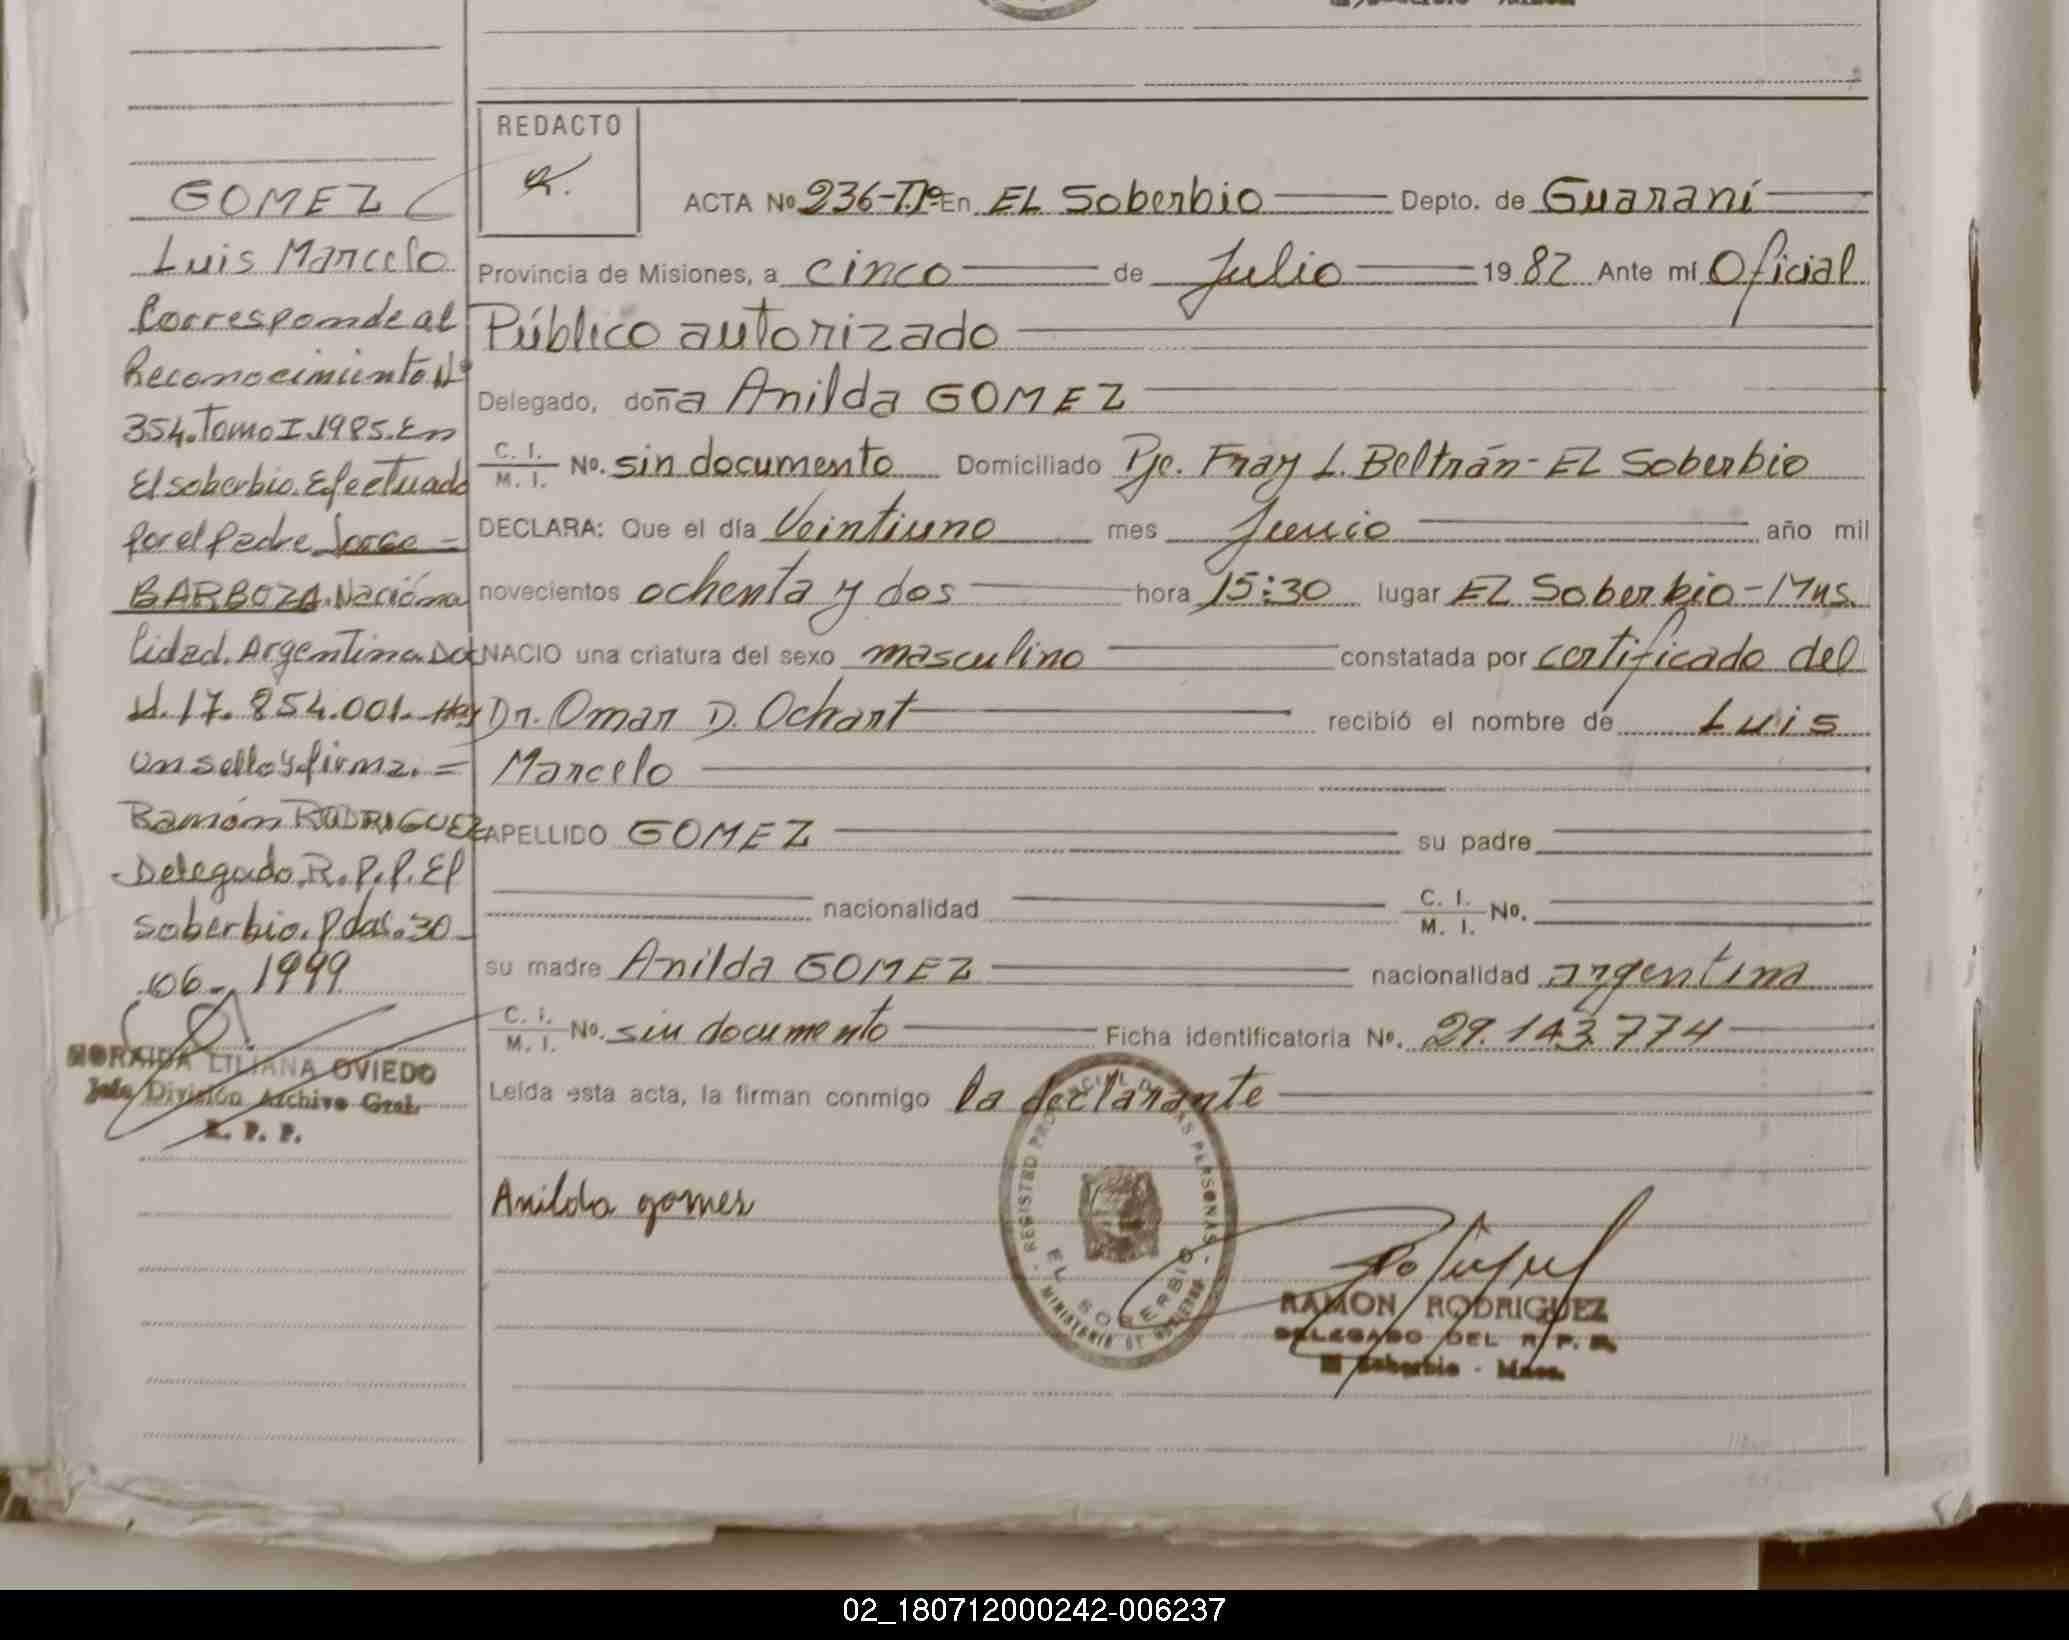 REDACTO
ACTA Nº 236-Tº Iº En EL Soberbio Depto. de Guaraní
Provincia de Misiones, a cinco de Julio 1982 Ante mí Oficial
Público autorizado
Delegado, doña Anilda GOMEZ
C. I. / M. I. No. sin documento Domiciliado Pje. Fray L. Beltrán - EL Soberbio
DECLARA: Que el día Veintiuno mes Junio año mil
novecientos ochenta y dos hora 15:30 lugar EL Soberbio - Mns.
NACIO una criatura del sexo masculino constatada por certificado del
Dr. Omar D. Ochart recibió el nombre de Luis
Marcelo
APELLIDO GOMEZ su padre
nacionalidad C. I. / M. I. No.
su madre Anilda GOMEZ nacionalidad argentina
C. I. / M. I. No. sin documento Ficha identificatoria No. 29.143.774
Leída esta acta, la firman conmigo la declarante
Anilda gomes
REGISTRO PROVINCIAL DE LAS PERSONAS
EL SOBERBIO
RAMON RODRIGUEZ
DELEGADO DEL R. P. P.
El Soberbio - Mnes.
GOMEZ
Luis Marcelo
Corresponde al
Reconocimiento Nº
354. Tomo I. 1985. En
El soberbio. Efectuado
por el Padre Jorge =
BARBOZA. Naciona
lidad. Argentina. Doc
N. 17.854.001. Hay
un sello y firma. =
Ramón RODRIGUEZ
Delegado. R. P. P. El
soberbio. Pdas. 30
06 - 1999
NORAIDA LILIANA OVIEDO
Jefe División Archivo Gral.
R. P. P.
02_180712000242-006237